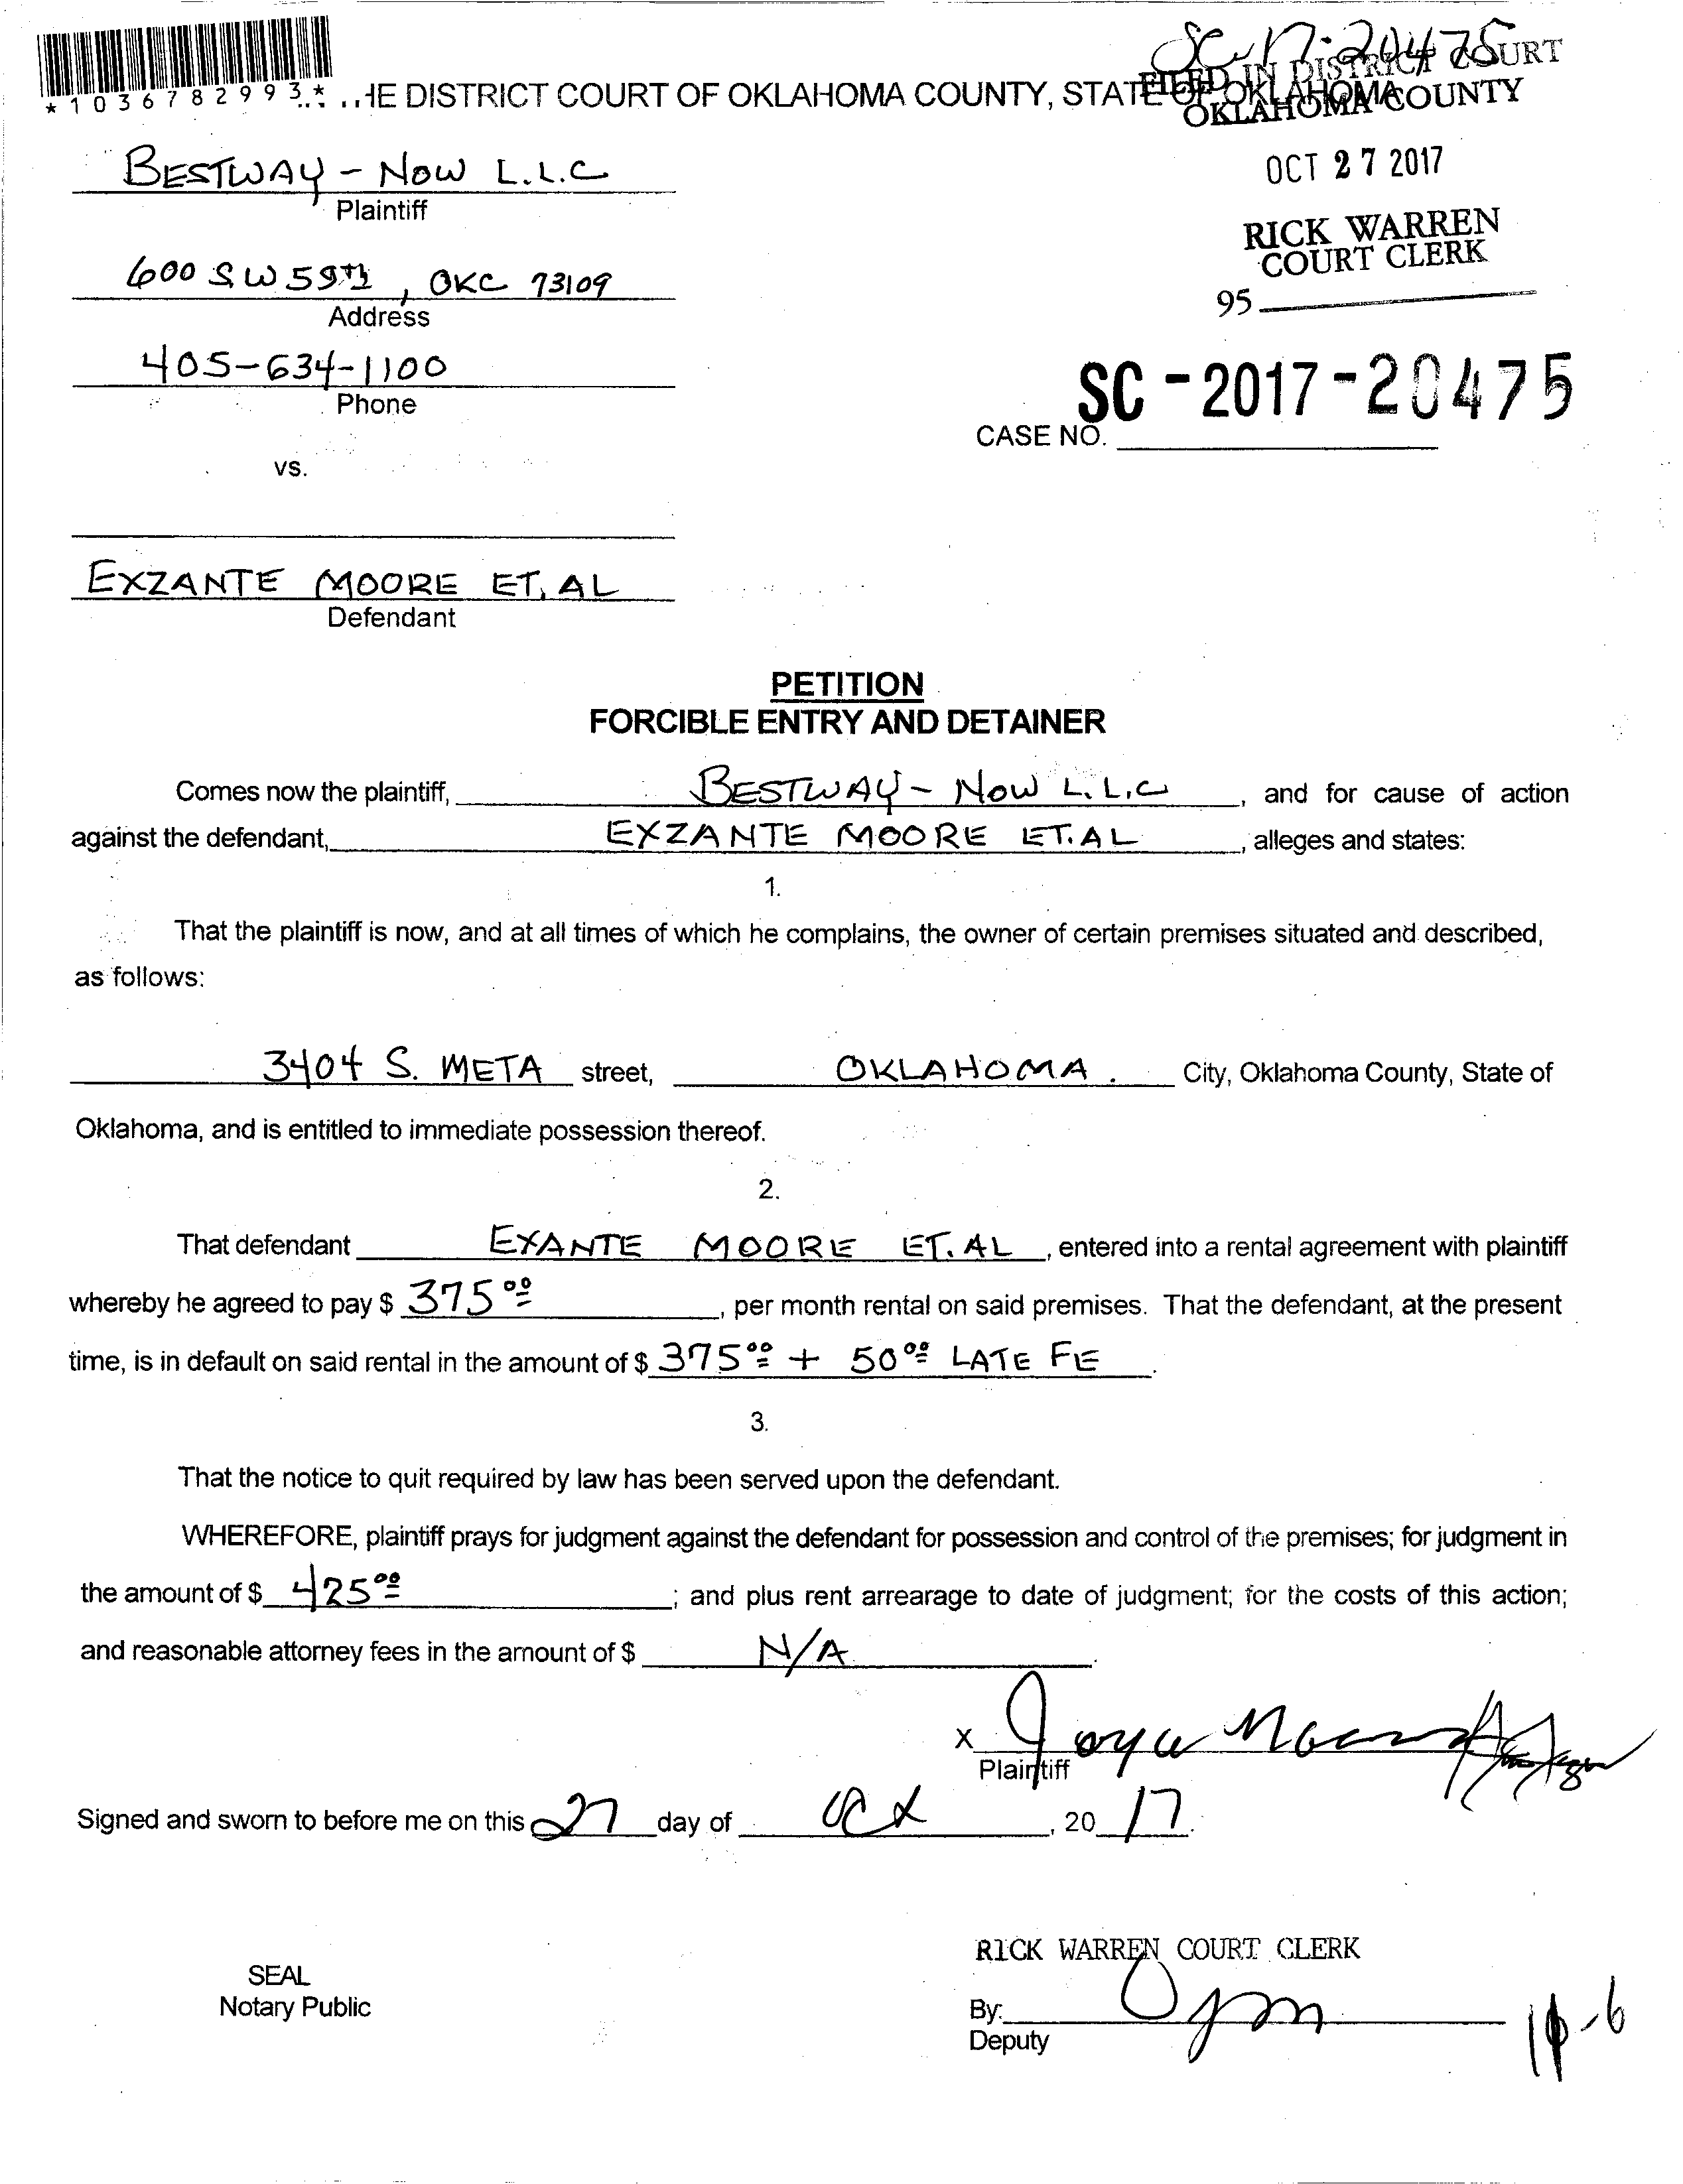 SC-17-20475
*1036782993* HE DISTRICT COURT OF OKLAHOMA COUNTY, STATE OF OKLAHOMA
FILED IN DISTRICT COURT
OKLAHOMA COUNTY
OCT 27 2017
RICK WARREN
COURT CLERK
95
BESTWAY - NOW L.L.C
Plaintiff
600 SW 59th, OKC 73109
Address
405-634-1100
Phone
SC - 2017 - 20475
CASE NO.
vs.
EXZANTE MOORE ET. AL
Defendant
PETITION
FORCIBLE ENTRY AND DETAINER
Comes now the plaintiff, BESTWAY - NOW L.L.C, and for cause of action
against the defendant, EXZANTE MOORE ET.AL, alleges and states:
1.
That the plaintiff is now, and at all times of which he complains, the owner of certain premises situated and described,
as follows:
3404 S. META street, OKLAHOMA. City, Oklahoma County, State of
Oklahoma, and is entitled to immediate possession thereof.
2.
That defendant EXANTE MOORE ET. AL, entered into a rental agreement with plaintiff
whereby he agreed to pay $ 375 00, per month rental on said premises. That the defendant, at the present
time, is in default on said rental in the amount of $ 375 00 + 50 00 LATE FE.
3.
That the notice to quit required by law has been served upon the defendant.
WHEREFORE, plaintiff prays for judgment against the defendant for possession and control of the premises; for judgment in
the amount of $ 425 00; and plus rent arrearage to date of judgment; for the costs of this action;
and reasonable attorney fees in the amount of $ N/A.
X
Plaintiff
Signed and sworn to before me on this 27 day of Oct, 20 17.
RICK WARREN COURT CLERK
SEAL
Notary Public
By:
Deputy